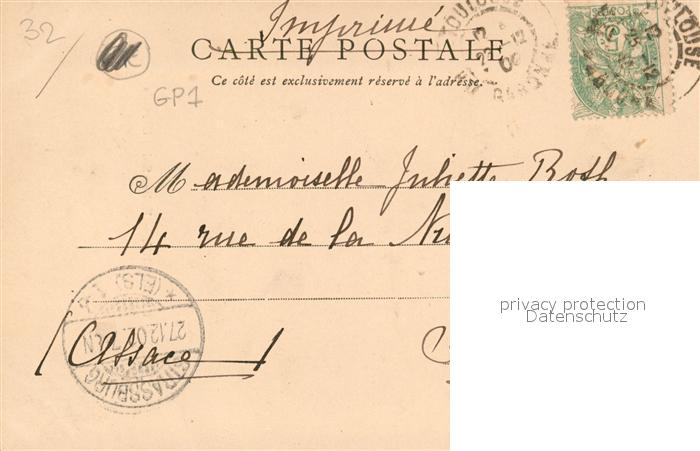 32
Imprimé
CARTE POSTALE
Ce côté est exclusivement réservé à l'adresse.
GP1
TOULOUSE
TOULOUSE
Mademoiselle Juliette Bosh
14 rue de la Nu
privacy protection
Datenschutz
(Alsace)
STRASSBURG
(ELS)
27.12.0